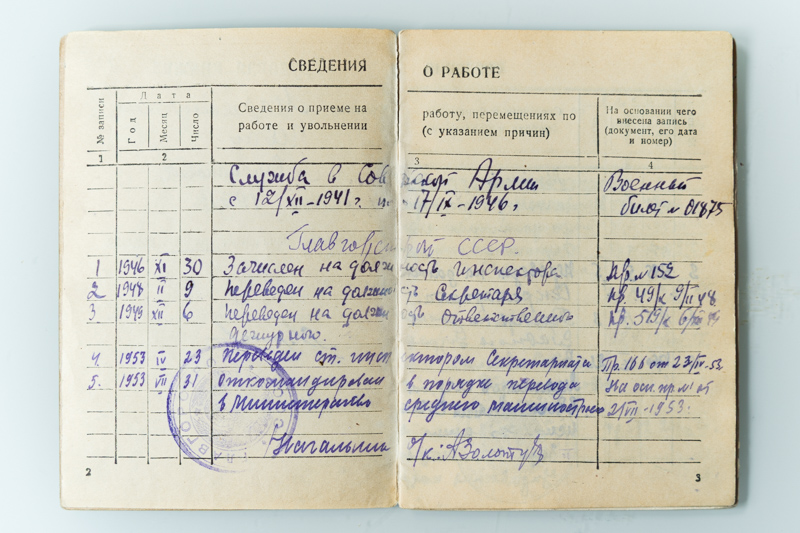 СВЕДЕНИЯ О РАБОТЕ
№ записи
Дата
Год
Месяц
Число
Сведения о приеме на работу, перемещениях по
работе и увольнении (с указанием причин)
На основании чего
внесена запись
(документ, его дата
и номер)
1 2 3 4
Служба в Советской Армии Военный
с 12/XII-1941 г. по 17/IX-1946 г. билет №01875
СССР.
1 1946 XI 30 Зачислен на должность инспектора Пр. №152
2 1948 II 9 Переведен на должность Секретаря Пр. 49/к 9/II 48
3 XII 6 Переведен на должность Ответственного Пр. 519/к 6/XII
Дежурного.
4. 1953 IV 23 Переведен ст. инспектором Секретариата Пр. 166 от 23/IV-53
5. 1953 VII 31 Откомандирован в порядке перевода На осн. пр. № от
в Министерство среднего машиностроен 2/VII-1953.
Начальник о/к: АЗолот
2
3